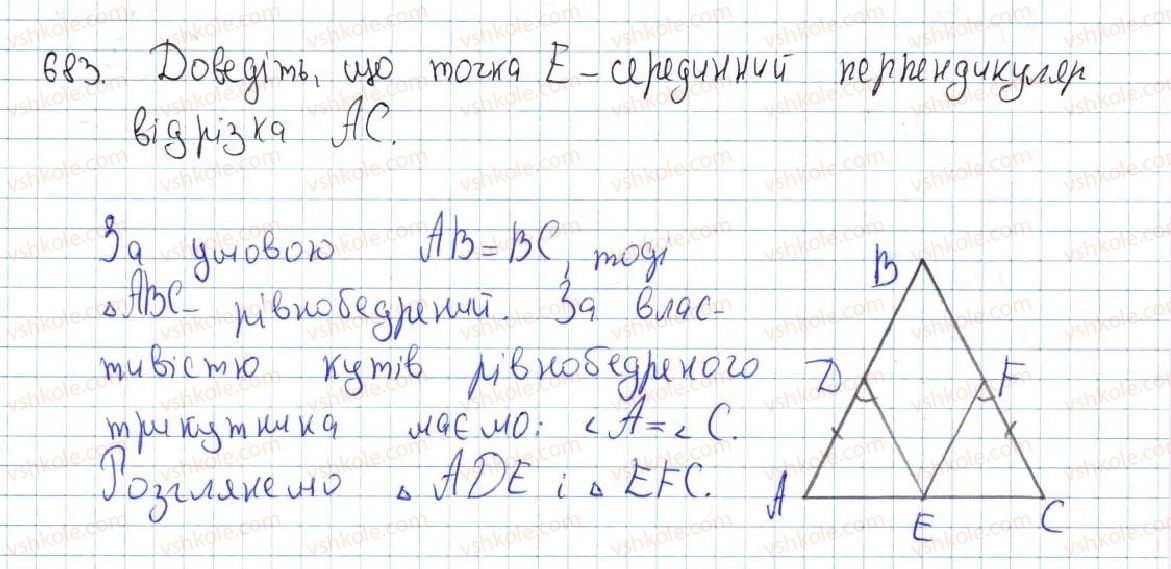 683. Доведіть, що точка E – серединний перпендикуляр
відрізка AC.
За умовою AB = BC, тоді
△ABC – рівнобедрений. За влас-
тивістю кутів рівнобедреного
трикутника маємо: ∠A = ∠C.
Розглянемо △ADE і △EFC.
B
D F
A E C
vshkole.com